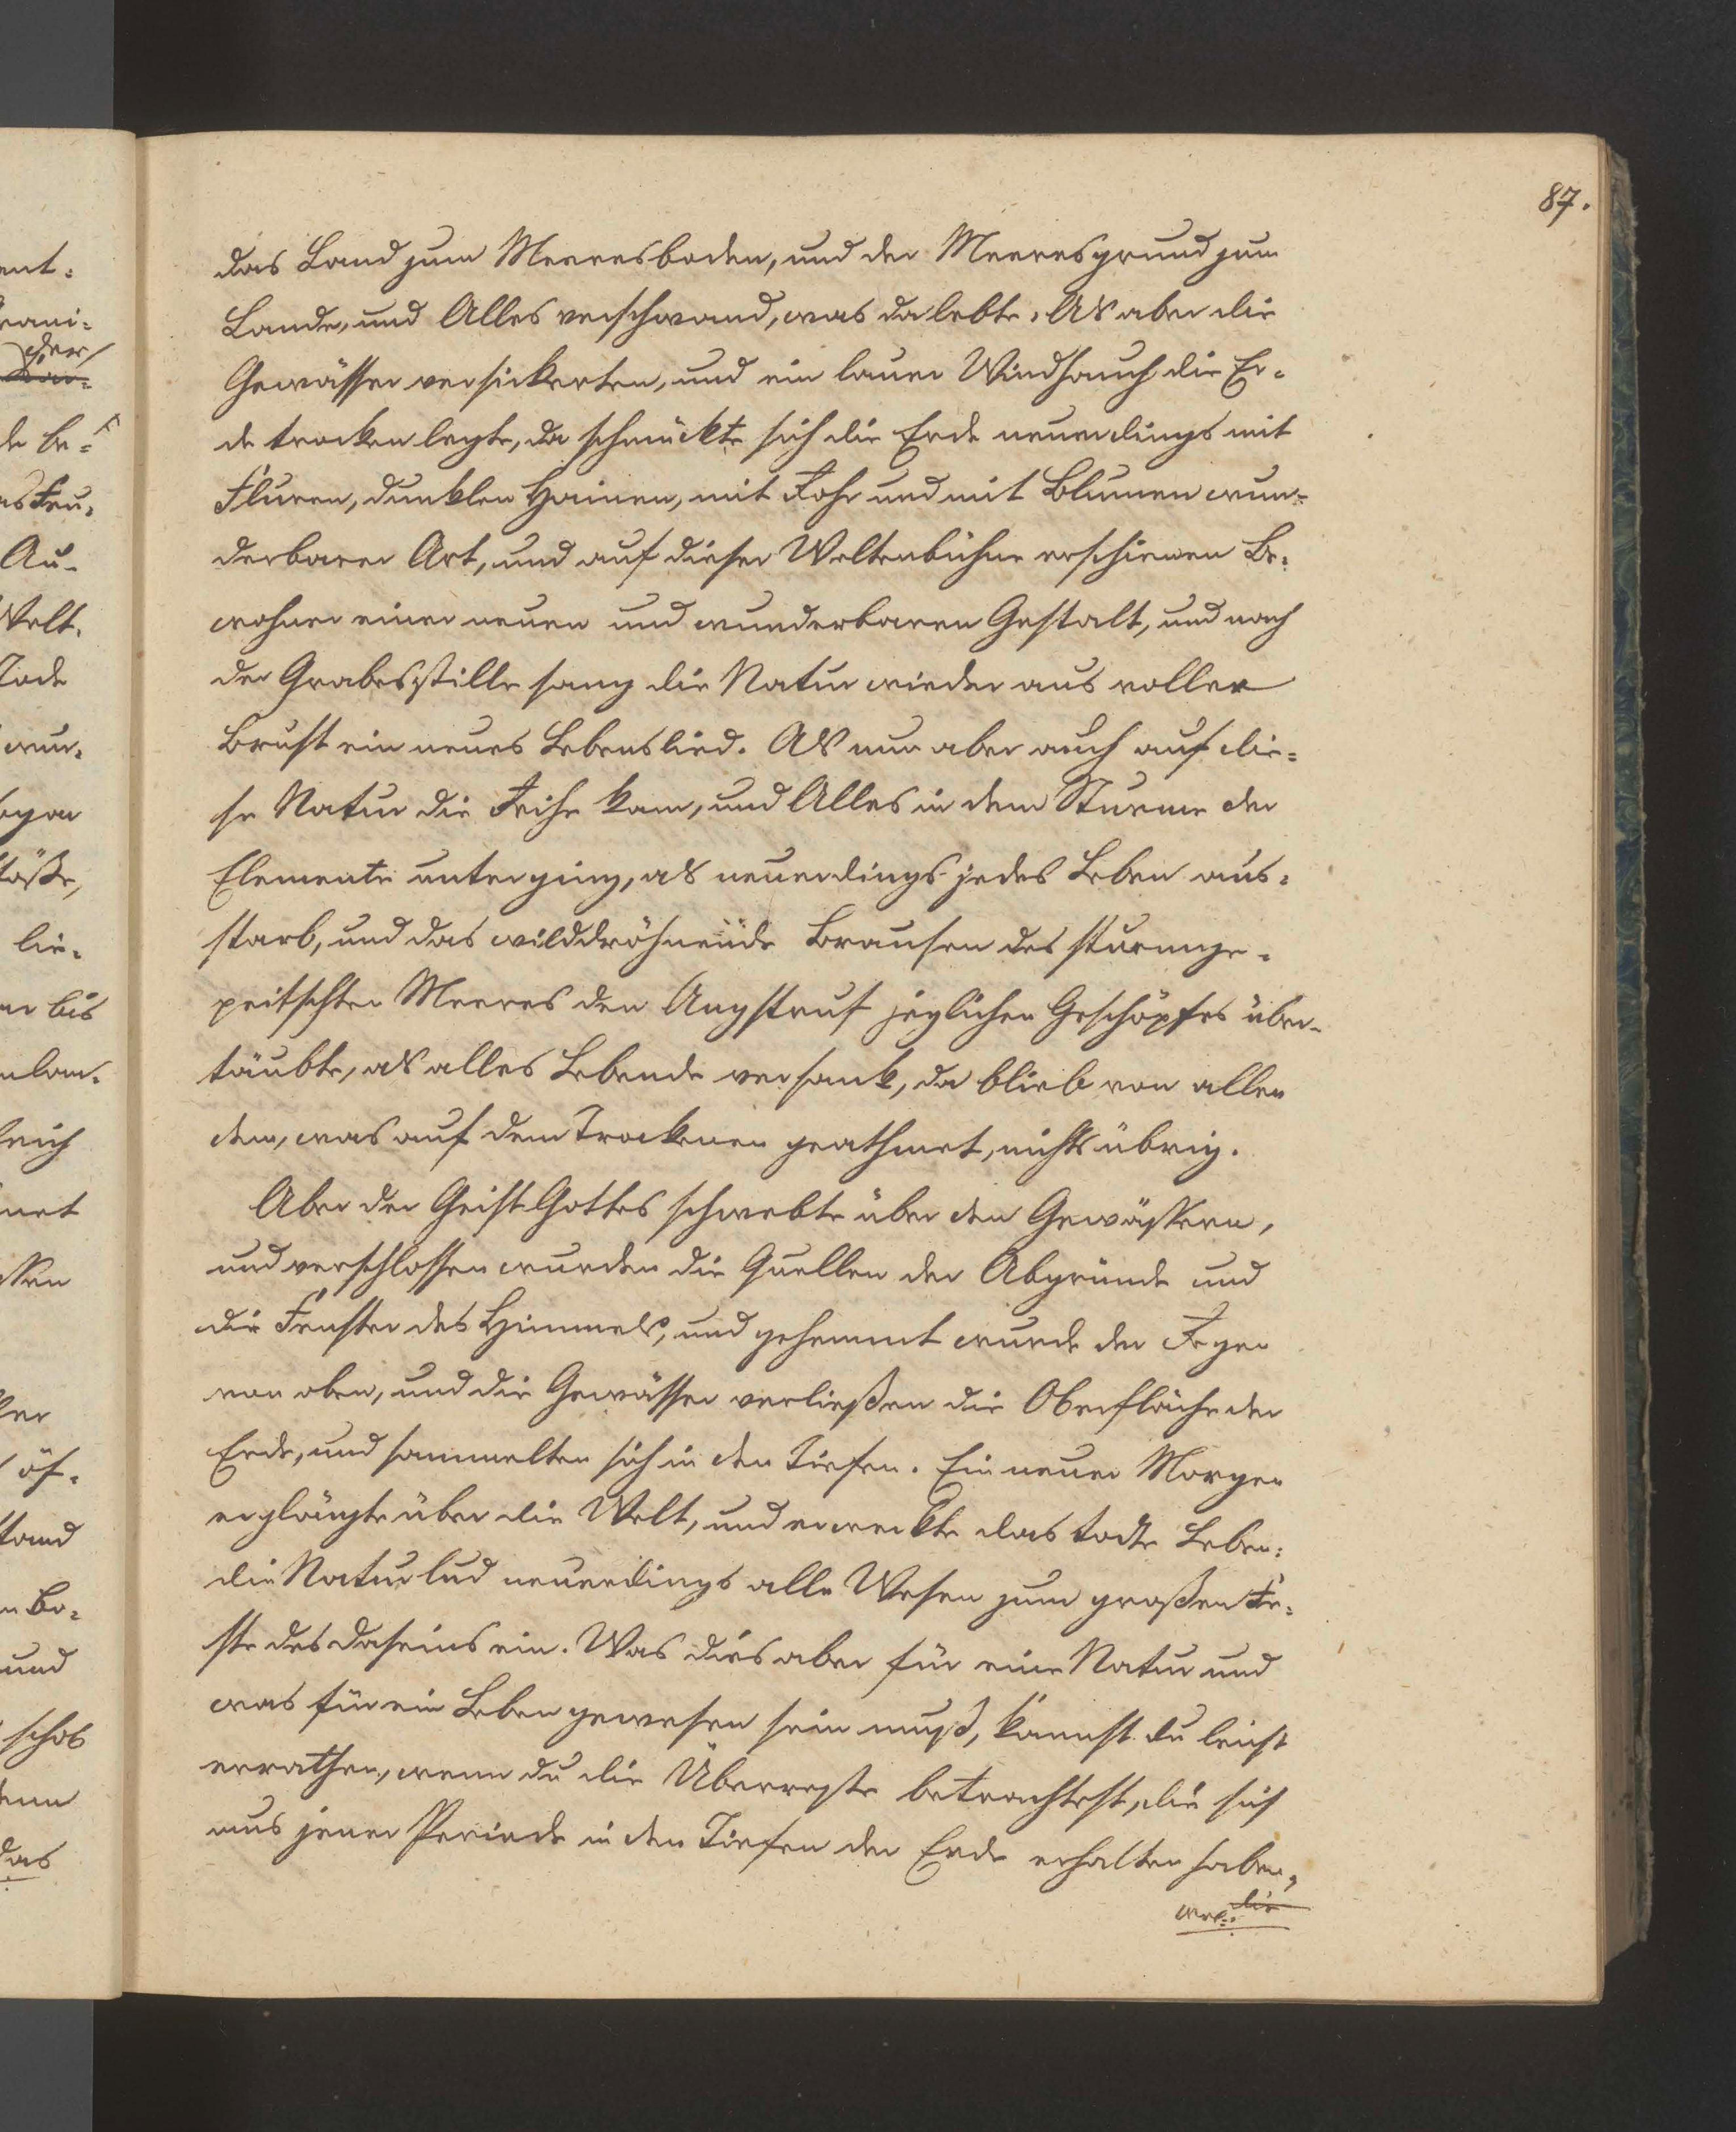 87.
das Land zum Meeresboden, und der Meeresgrund zum
Lande, und Alles verschwand, was da lebte. Als aber die
Gewässer versickerten, und ein lauer Windhauch die Er-
de trocken legte, da schmückte sich die Erde neuerdings mit
Fluren, dunklen Hainen, mit Rohr und mit Blumen wun-
derbarer Art, und auf dieser Weltenbühne erschienen Be-
wohner einer neuen und wunderbaren Gestalt, und nach
der Grabesstille sang die Natur wieder aus voller
Brust ein neues Lebenslied. Als nun aber auch auf die-
se Natur die Reihe kam, und Alles in dem Sturme der
Elemente unterging, als neuerdings jedes Leben aus-
starb, und das wilddröhnende Brausen des sturmge-
peitschten Meeres den Angstruf jeglichen Geschöpfes über-
täubte, als alles Lebende versank, da blieb von allen
dem, was auf dem Trockenen geathmet, nichts übrig.
Aber der Geist Gottes schwebte über den Gewässern,
und verschlossen wurden die Quellen der Abgründe und
die Fenster des Himmels, und gehemmt wurde der Regen
von oben, und die Gewässer verließen die Oberfläche der
Erde, und sammelten sich in den Tiefen. Ein neuer Morgen
erglänzte über die Welt, und erweckte das todte Leben:
die Natur lud neuerdings alle Wesen zum großen Fe-
ste des Daseins ein. Was dies aber für eine Natur und
was für ein Leben gewesen sein muß, kannst du leicht
errathen, wenn du die Überreste betrachtest, die sich
aus jener Periode in den Tiefen der Erde erhalten haben,
wel- die